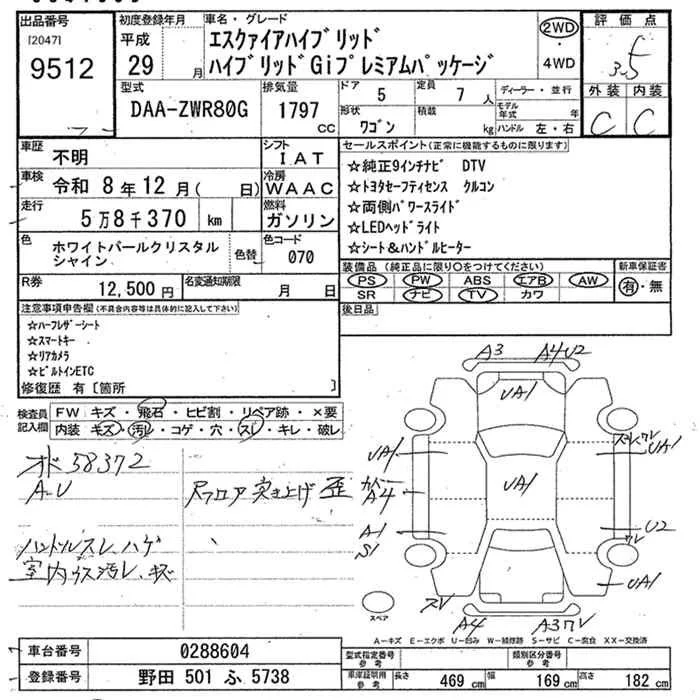 出品番号
[2047]
9512
初度登録年月
平成
29 月
車名・グレード
エスクァイアハイブリッド
ハイブリッドGiプレミアムパッケージ
2WD
・
4WD
評価点
3.5
外装 内装
C C
型式
DAA-ZWR80G
排気量
1797
CC
ドア 5
定員 7 人
形状
ワゴン
積載
kg
ディーラー・並行
モデル
年式 年
ハンドル 左・右
車歴 不明
シフト
IAT
車検 令和 8年 12月( 日)
冷房
WAAC
走行 5万8千370 km
燃料
ガソリン
色 ホワイトパールクリスタル
シャイン
色替
色コード
070
R券 12,500円
名変通知期限
月 日
セールスポイント(正常に機能するものに限ります)
☆純正9インチナビ DTV
☆トヨタセーフティセンス クルコン
☆両側パワースライド
☆LEDヘッドライト
☆シート&ハンドルヒーター
装備品(純正品に限り○をつけてください)
PS PW ABS エアB AW
SR ナビ TV カワ
新車保証書
有・無
後日品
注意事項申告欄(不具合内容等は具体的に記入して下さい)
☆ハーフレザーシート
☆スマートキー
☆リアカメラ
☆ビルトインETC
修復歴 有〔箇所 〕
検査員
記入欄
FW キズ・飛石・ヒビ割・リペア跡・×要
内装 キズ・汚レ・コゲ・穴・スレ・キレ・破レ
58372
A-U
ハンドルスレ、ハゲ
室内ウス汚レ、キズ
フロア 突き上げ 歪
A3 A4U2
UA1
UA1
UA1
UA1
A4
A1
S1
U2
UA1
A4
スペア
A-キズ E-エクボ U-凹み W-補修跡 S-サビ C-腐食 XX-交換済
車台番号 0288604
登録番号 野田 501 ふ 5738
型式指定番号
参考
類別区分番号
参考
車庫証明用
参考
長さ 469 cm
幅 169 cm
高さ 182 cm